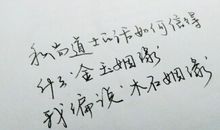 和尚道士的话如何信得
什么金玉姻缘
我偏说木石姻缘